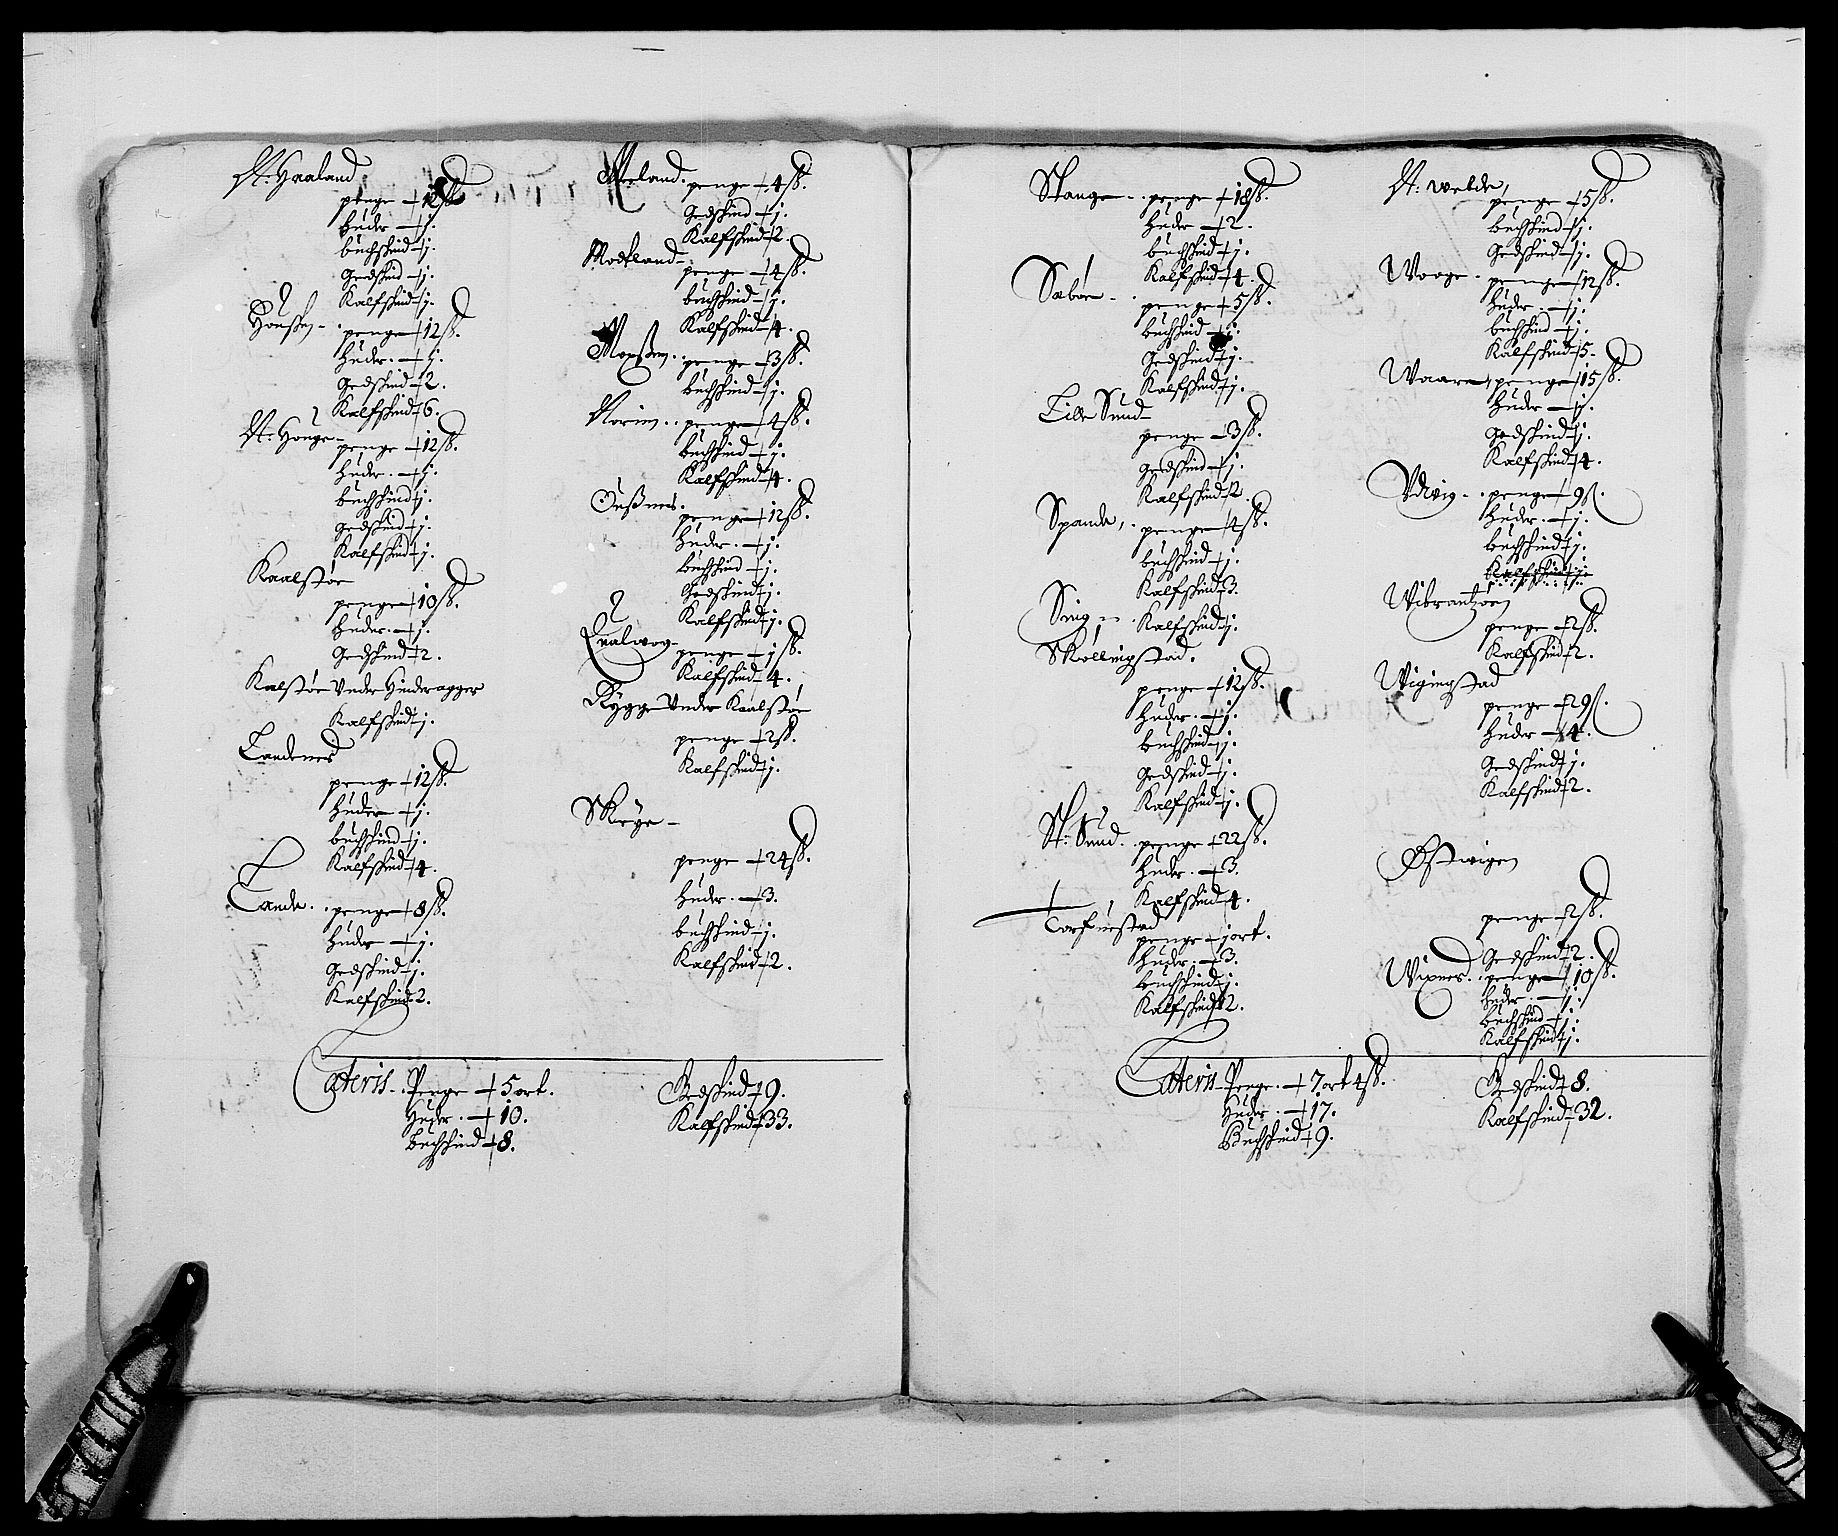 N: Haaland
penge – 12 ß.
huder – j.
buchskind – j.
Gedskind – j.
Kalfskind – j.
Housken – penge – 12 ß.
huder. – j.
Gedskind – 2.
Kalfskind – 6.
N: Houge –
penge – 12 ß.
huder. – j.
buchskind – j.
gedskind – j.
Kalfskind – j.
Kaalstøe
penge – 10 ß.
huder. – j.
Gedskind – 2.
Kalstøe Under Hinderagger
Kalfskind – j.
Landenes
penge – 12 ß.
huder – j.
buchskind – j.
Kalfskind – 4.
Lande. penge – 8 ß.
huder – j.
Gedskind – j.
Kalfskind – 2.
Meland. penge – 4 ß.
Gedskind – j.
Kalfskind – 2.
Modland –
penge – 4 ß.
buchskind – j.
Kalfskind – 4.
penge – 3 ß.
buchskind – j.
Norim. penge – 4 ß.
buchskind – j.
Kalfskind – 4.
penge – 12 ß.
huder. – j.
buchskind – j.
Gedskind – j.
Kalfskind – j.
Qualwog – penge – j ß.
Kalfskind – 4.
Rygge Under Kaalstøe
penge – 2 ß.
Kalfskind – j.
Skrye –
penge – 24 ß.
huder. – 3.
buchskind – j.
Kalfskind – 2.
Lateris. Penge – 5 ort.
Huder. – 10.
buchskind – 8.
Gedskind – 9.
Kalfskind – 33.
Stange – penge – 18 ß.
huder – 2.
buchskind – j.
Kalfskind – 4.
Sæbøe –
penge – 5 ß.
buchskind – j.
Gedskind – j.
Kalfskind – j.
Lille Sund –
penge – 3 ß.
Gedskind – j.
Kalfskind – 2.
Spande, penge – 4 ß.
buchskind – j.
Kalfskind – 3.
Syng – Kalfskind – j.
Skøllingstad.
penge – 12 ß.
huder. – j.
buchskind – j.
Gedskind – j.
Kalfskind – j.
St: Sund. penge – 22 ß.
huder. – 3.
Kalfskind – 4.
Torfuestad
penge – j ort.
huder. – 3.
buchskind – j.
Kalfskind – 2.
Lateris – Penge. – 7 ort 4 ß.
Huder. – 17.
Buchskind – 9.
N: welde,
penge – 5 ß.
buchskind – j.
Gedskind – j.
Wooge. penge – 12 ß.
huder. – j.
buchskind – j.
Kalfskind – 5.
Waare, penge – 15 ß.
huder – j.
Gedskind – j.
Kalfskind – 4.
Udvig – penge – 9 ß.
huder. – j.
buchskind – j.
Kalfskind – j.
Wibrantzøen
penge – 2 ß.
Kalfskind – 2.
Wigingstad
penge – 29 ß.
huder – 4.
Gedskind – j.
Kalfskind – 2.
Østwigen
penge – 2 ß.
Gedskind – 2.
Wixnes. penge – 10 ß.
huder. – j.
buchskind – j.
Kalfskind – j.
Gedskind – 8.
Kalfskind – 32.